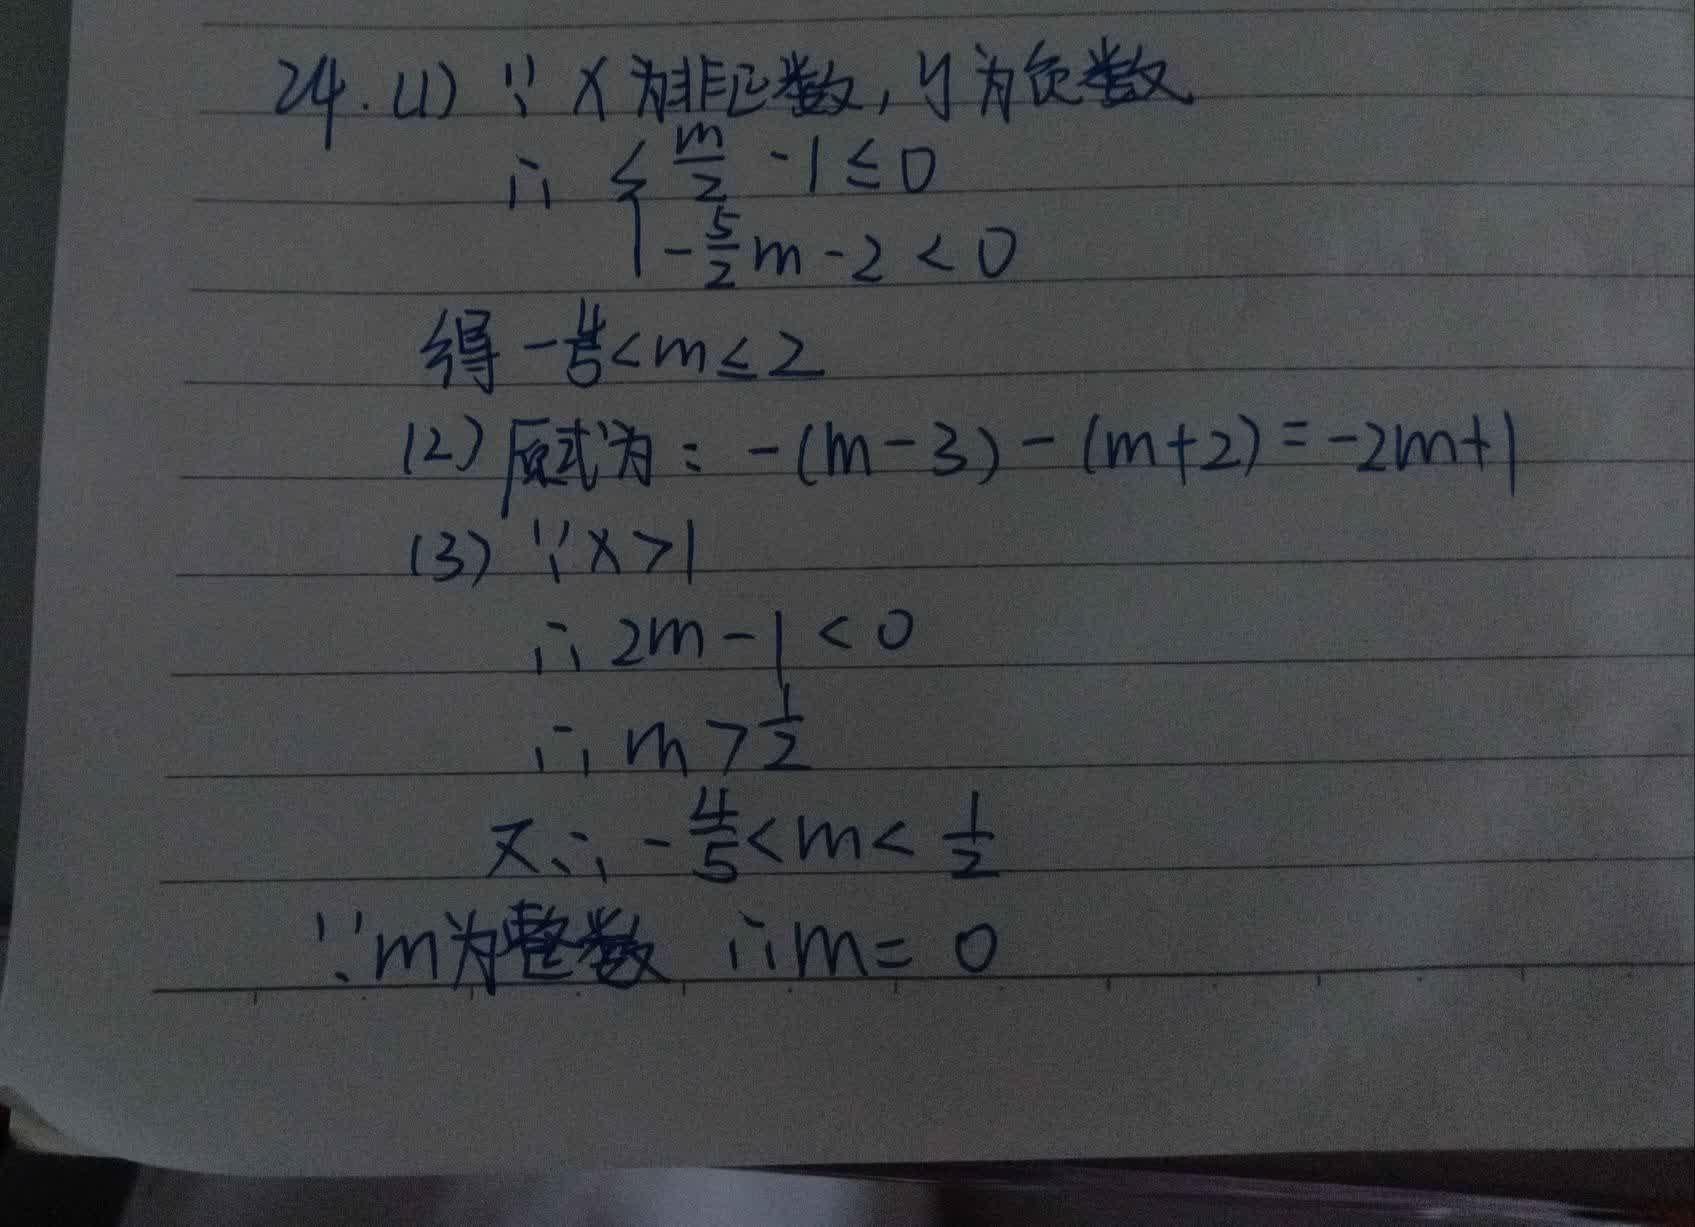 24.(1) ∵ x为非正数,y为负数
∴ { m/2 -1≤0
-5/2m-2<0
得 -4/5<m≤2
(2)原式为:-(m-3)-(m+2)=-2m+1
(3) ∵x>1
∴2m-1<0
∴m>1/2
又∴-4/5<m<1/2
∵m为整数 ∴m=0